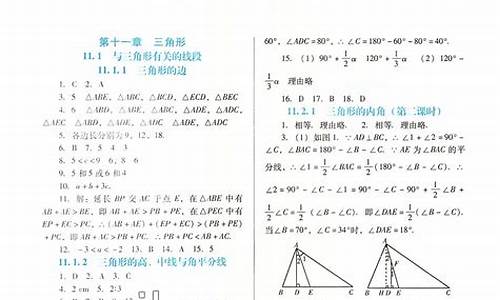 第十一章 三角形
11.1 与三角形有关的线段
11.1.1 三角形的边
1. C 2. A
3. 5 △ABE, △ABC, △BCD, △ECD, △BEC
4. 6 △ABD, △ABE, △ABC, △ADE, △ADC,
△AEC △ABD, △ADE, △ADC △ADE, △ADC
5. 各边长分别为 9, 12, 18.
6. B 7. 5 4 3
8. 5<c<9 6, 8 6
9. 5 和 5 或 6 和 4
10. a+b+3c.
11. 解: 延长 BP 交 AC 于点 E, 在△ABE 中有
AB+AE>BE, 即 AB+AE>PB+PE, 在△PEC 中有
EP+EC>PC, ∴(AB+AE)+(EP+EC)>(PB+PE)
+PC, 即 AB+AC>PB+PC. ∴PB+PC<AB+AC.
12. -3<a<-2 13. B 14. A 15. 5
11.1.2 三角形的高、中线与角平分线
1. D 2. A 3. C
4. 2 cm 5. 2:3
60°, ∠ADC=80°, ∴∠C=180°-60°-80°=40°.
15. (1) 90°+1/2α 120°+1/3α (2) 120°-
1/3α 理由略
16. D 17. B 18. D
11.2.1 三角形的内角 (第二课时)
1. 相等. 理由略. 2. 相等. 理由略.
3. (1) 如图 1. ∵AD⊥BC, ∴∠1+∠2=90°-
∠C, ∠BAC=180°-∠B-∠C. ∵AE 为∠BAC 的平
分线, ∴∠1=1/2∠BAC=1/2(180°-∠B-∠C). ∴
∠2=90°-∠C-∠1=90°-∠C-90°+1/2∠B+
1/2∠C=1/2(∠B-∠C). 即∠DAE=1/2(∠B-∠C).
当∠B=70°, ∠C=34°时, ∠DAE=18°.
A
2 1
B D E C
A
F
B H D E C